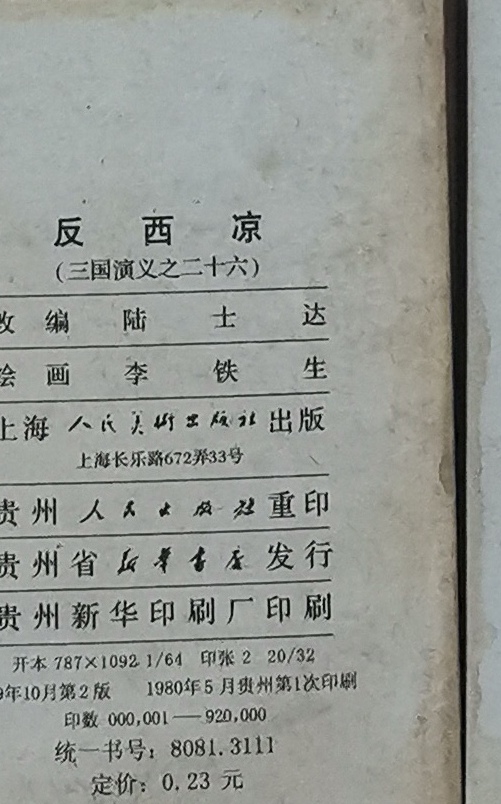 反西凉
(三国演义之二十六)
改编 陆士达
绘画 李铁生
上海人民美術出版社出版
上海长乐路672弄33号
贵州人民出版社重印
贵州省新华书店发行
贵州新华印刷厂印刷
开本 787×1092 1/64 印张 2 20/32
9年10月第2版 1980年5月贵州第1次印刷
印数 000,001——920,000
统一书号: 8081.3111
定价: 0.23 元